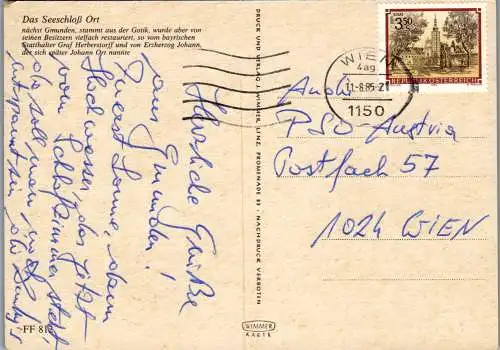 Das Seeschloß Ort
nächst Gmunden, stammt aus der Gotik, wurde aber von
seinen Besitzern vielfach restauriert, so vom bayrischen
Statthalter Graf Herberstorff und von Erzherzog Johann,
der sich später Johann Ort nannte
Herzliche Grüße
aus Gmunden!
Zuerst Sonne, dann
Hochwasser, das jetzt
vom Schlafzimmer steht,
da soll man noch
entspannt sein,
FF 812
DRUCK UND VERLAG J. WIMMER, LINZ, PROMENADE 23 • NACHDRUCK VERBOTEN
WIMMER
KARTE
WIEN
4ag
11-8.85-21
1150
S 3.50
REPUBLIK ÖSTERREICH
An
PSD-Austria
Postfach 57
1024 WIEN